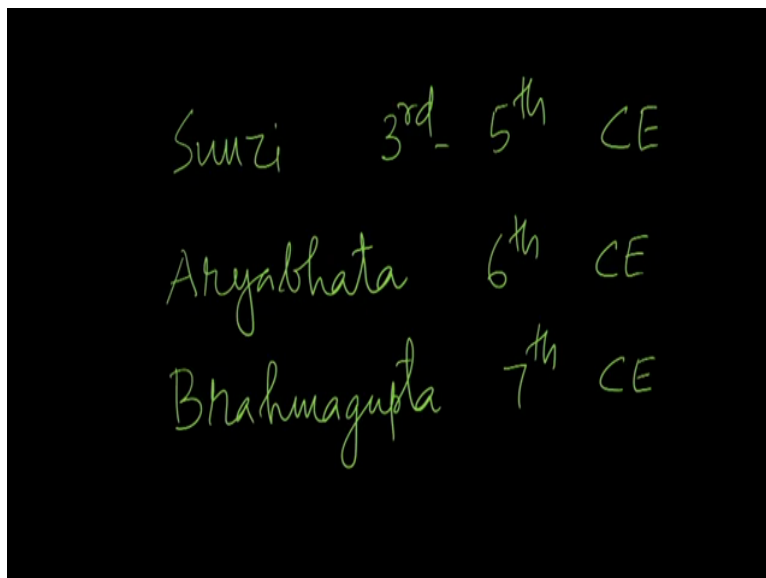 Sunzi 3rd - 5th CE
Aryabhata 6th CE
Brahmagupta 7th CE